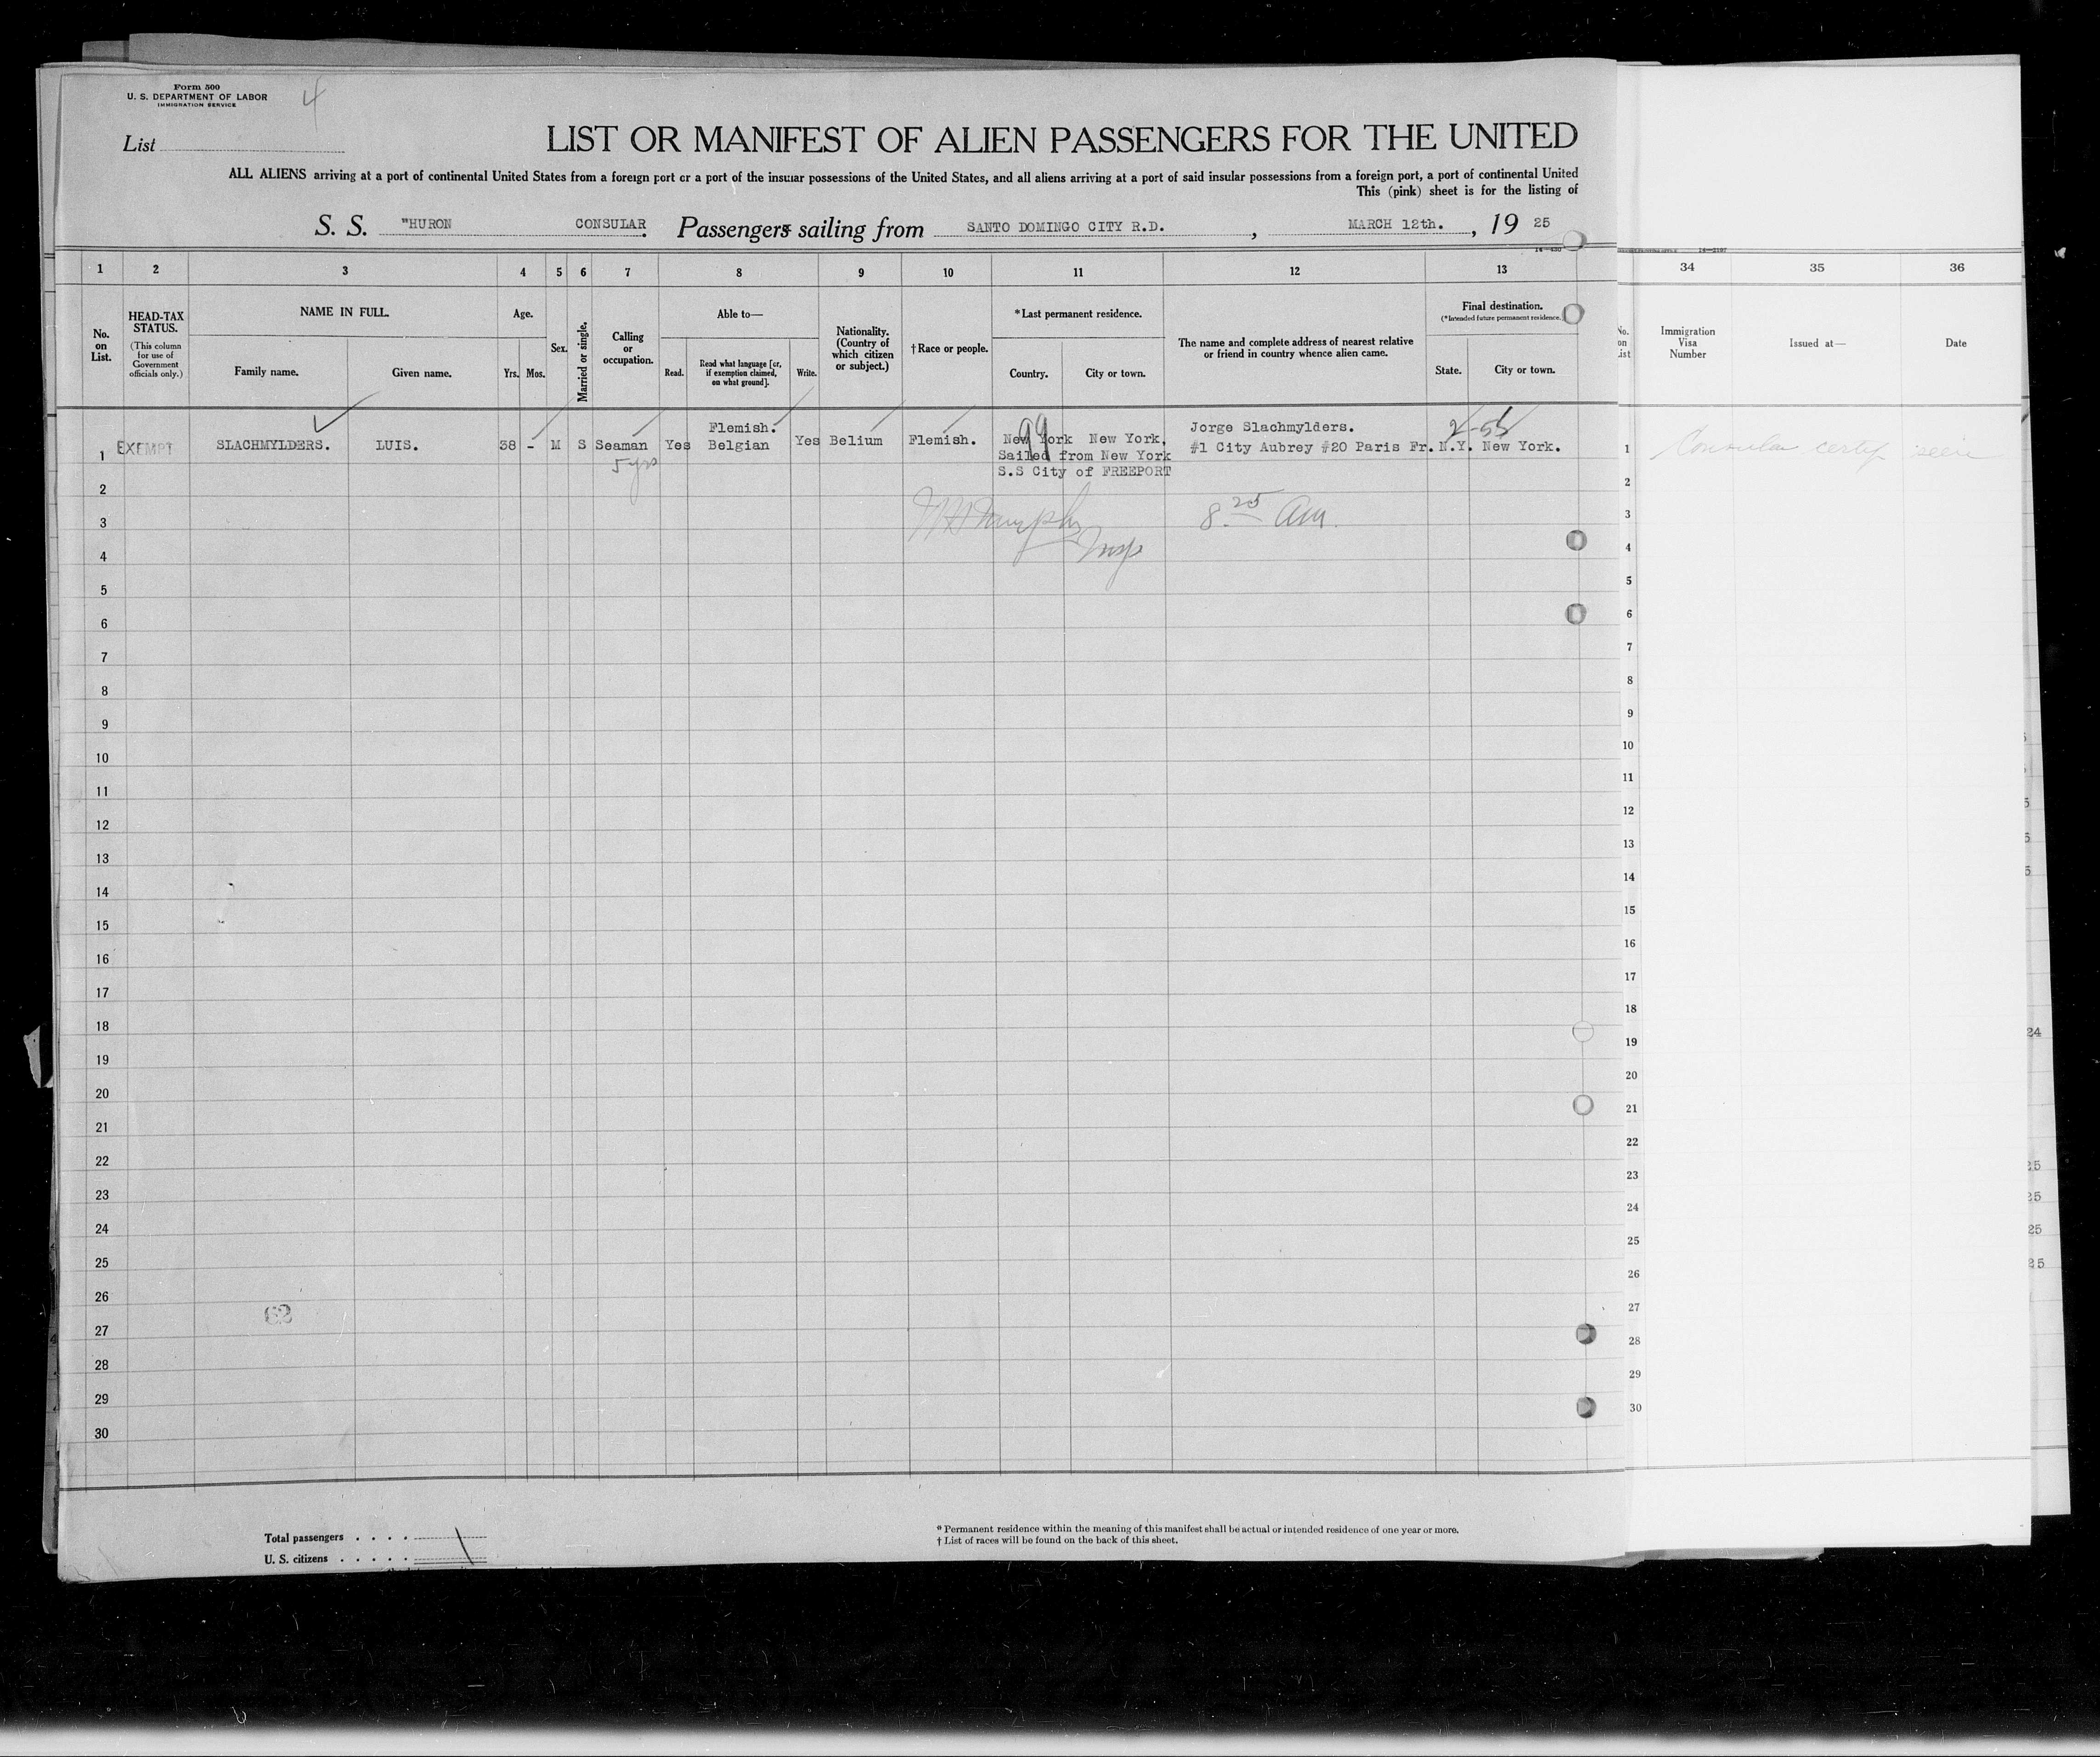 Form 500
U. S. DEPARTMENT OF LABOR
IMMIGRATION SERVICE
4
List
LIST OR MANIFEST OF ALIEN PASSENGERS FOR THE UNITED
ALL ALIENS arriving at a port of continental United States from a foreign port or a port of the insular possessions of the United States, and all aliens arriving at a port of said insular possessions from a foreign port, a port of continental United
This (pink) sheet is for the listing of
S. S. "HURON CONSULAR. Passengers sailing from SANTO DOMINGO CITY R.D. , MARCH 12th. , 19 25
1 2 3 4 5 6 7 8 9 10 11 12 13 34 35 36
No. on List.
HEAD-TAX STATUS.
(This column for use of Government officials only.)
NAME IN FULL.
Family name. Given name.
Age.
Yrs. Mos.
Sex.
Married or single.
Calling or occupation.
Able to—
Read. Read what language [or, if exemption claimed, on what ground]. Write.
Nationality. (Country of which citizen or subject.)
† Race or people.
* Last permanent residence.
Country. City or town.
The name and complete address of nearest relative or friend in country whence alien came.
Final destination.
(*Intended future permanent residence.)
State. City or town.
No. on List
Immigration Visa Number
Issued at—
Date
Flemish. Jorge Slachmylders. 2-55
1 EXEMPT SLACHMYLDERS. LUIS. 38 - M S Seaman Yes Belgian Yes Belium Flemish. New York New York, #1 City Aubrey #20 Paris Fr. N.Y. New York. 1 Consular certif seen
5 yrs Sailed from New York
99
S.S City of FREEPORT
2 2
3 Murphy 8.25 am. 3
Insp
4 4
5 5
6 6
7 7
8 8
9 9
10 10
11 11
12 12
13 13
14 14
15 15
16 16
17 17
18 18
19 19
20 20
21 21
22 22
23 23
24 24
25 25
26 26
62
27 27
28 28
29 29
30 30
Total passengers . . . .
U. S. citizens . . . . .
* Permanent residence within the meaning of this manifest shall be actual or intended residence of one year or more.
† List of races will be found on the back of this sheet.
24
25
25
25
25